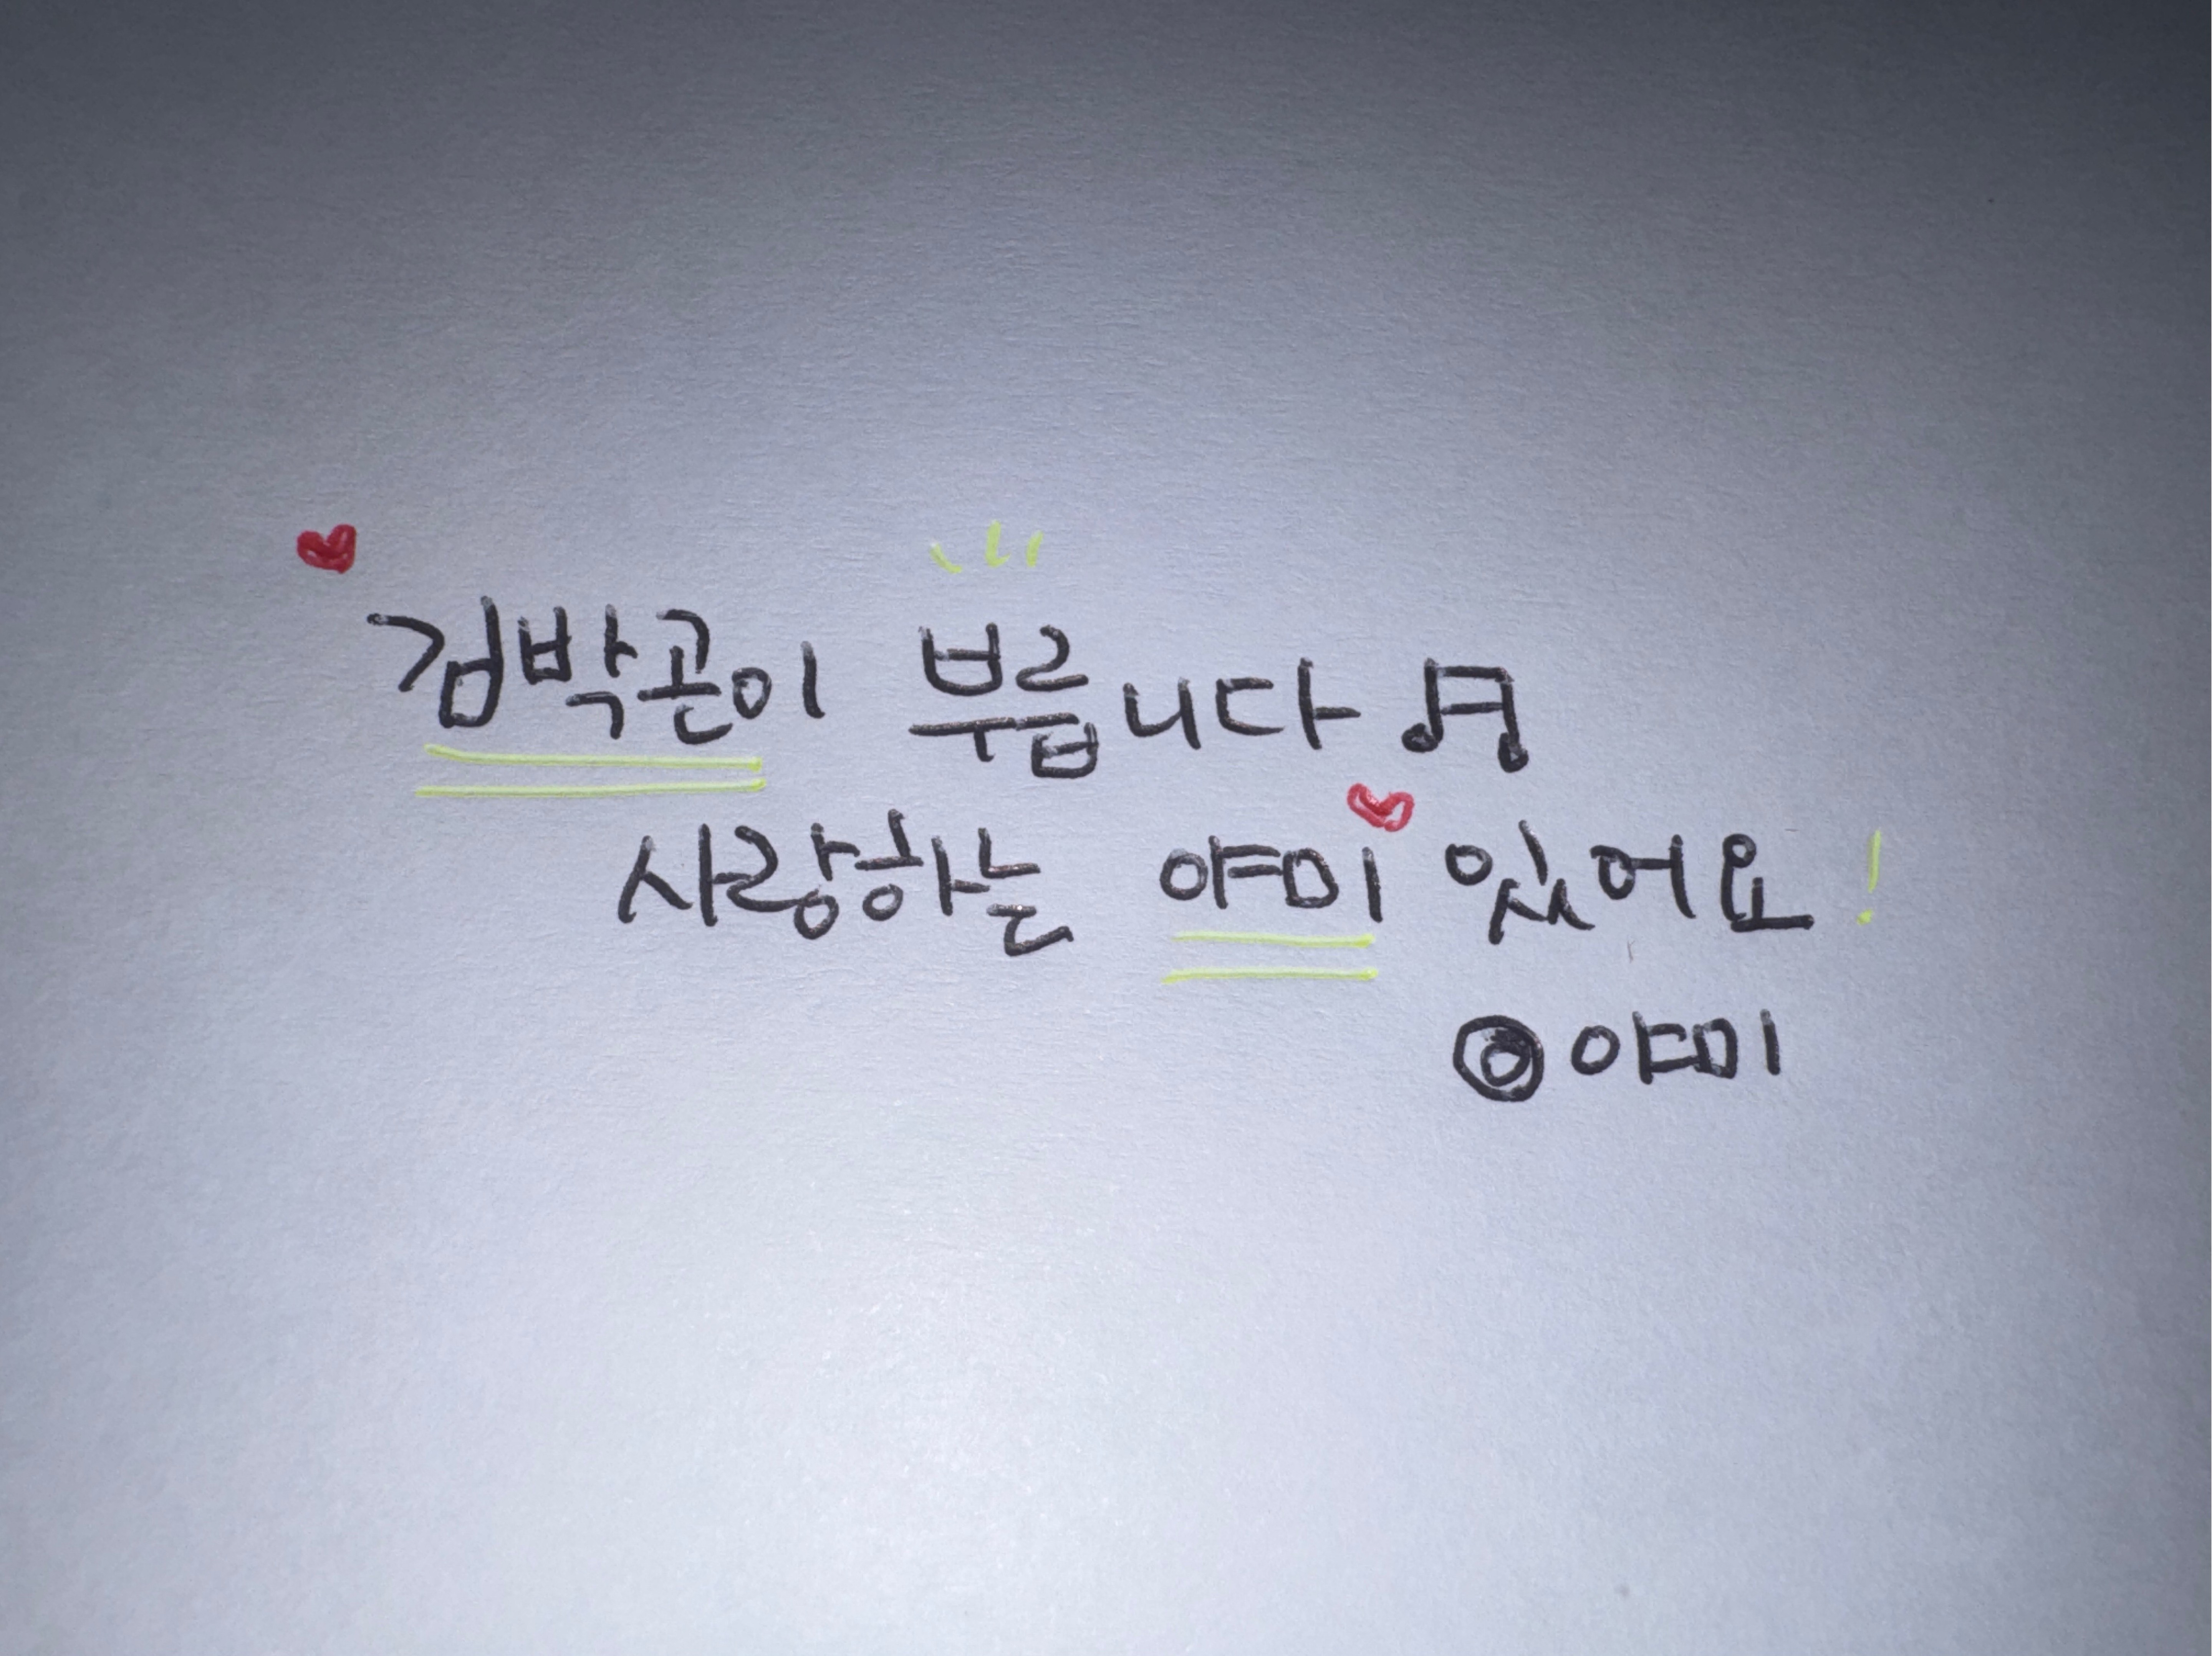 김박곤이 부릅니다 ♬
사랑하는 야미 있어요!
◎야미